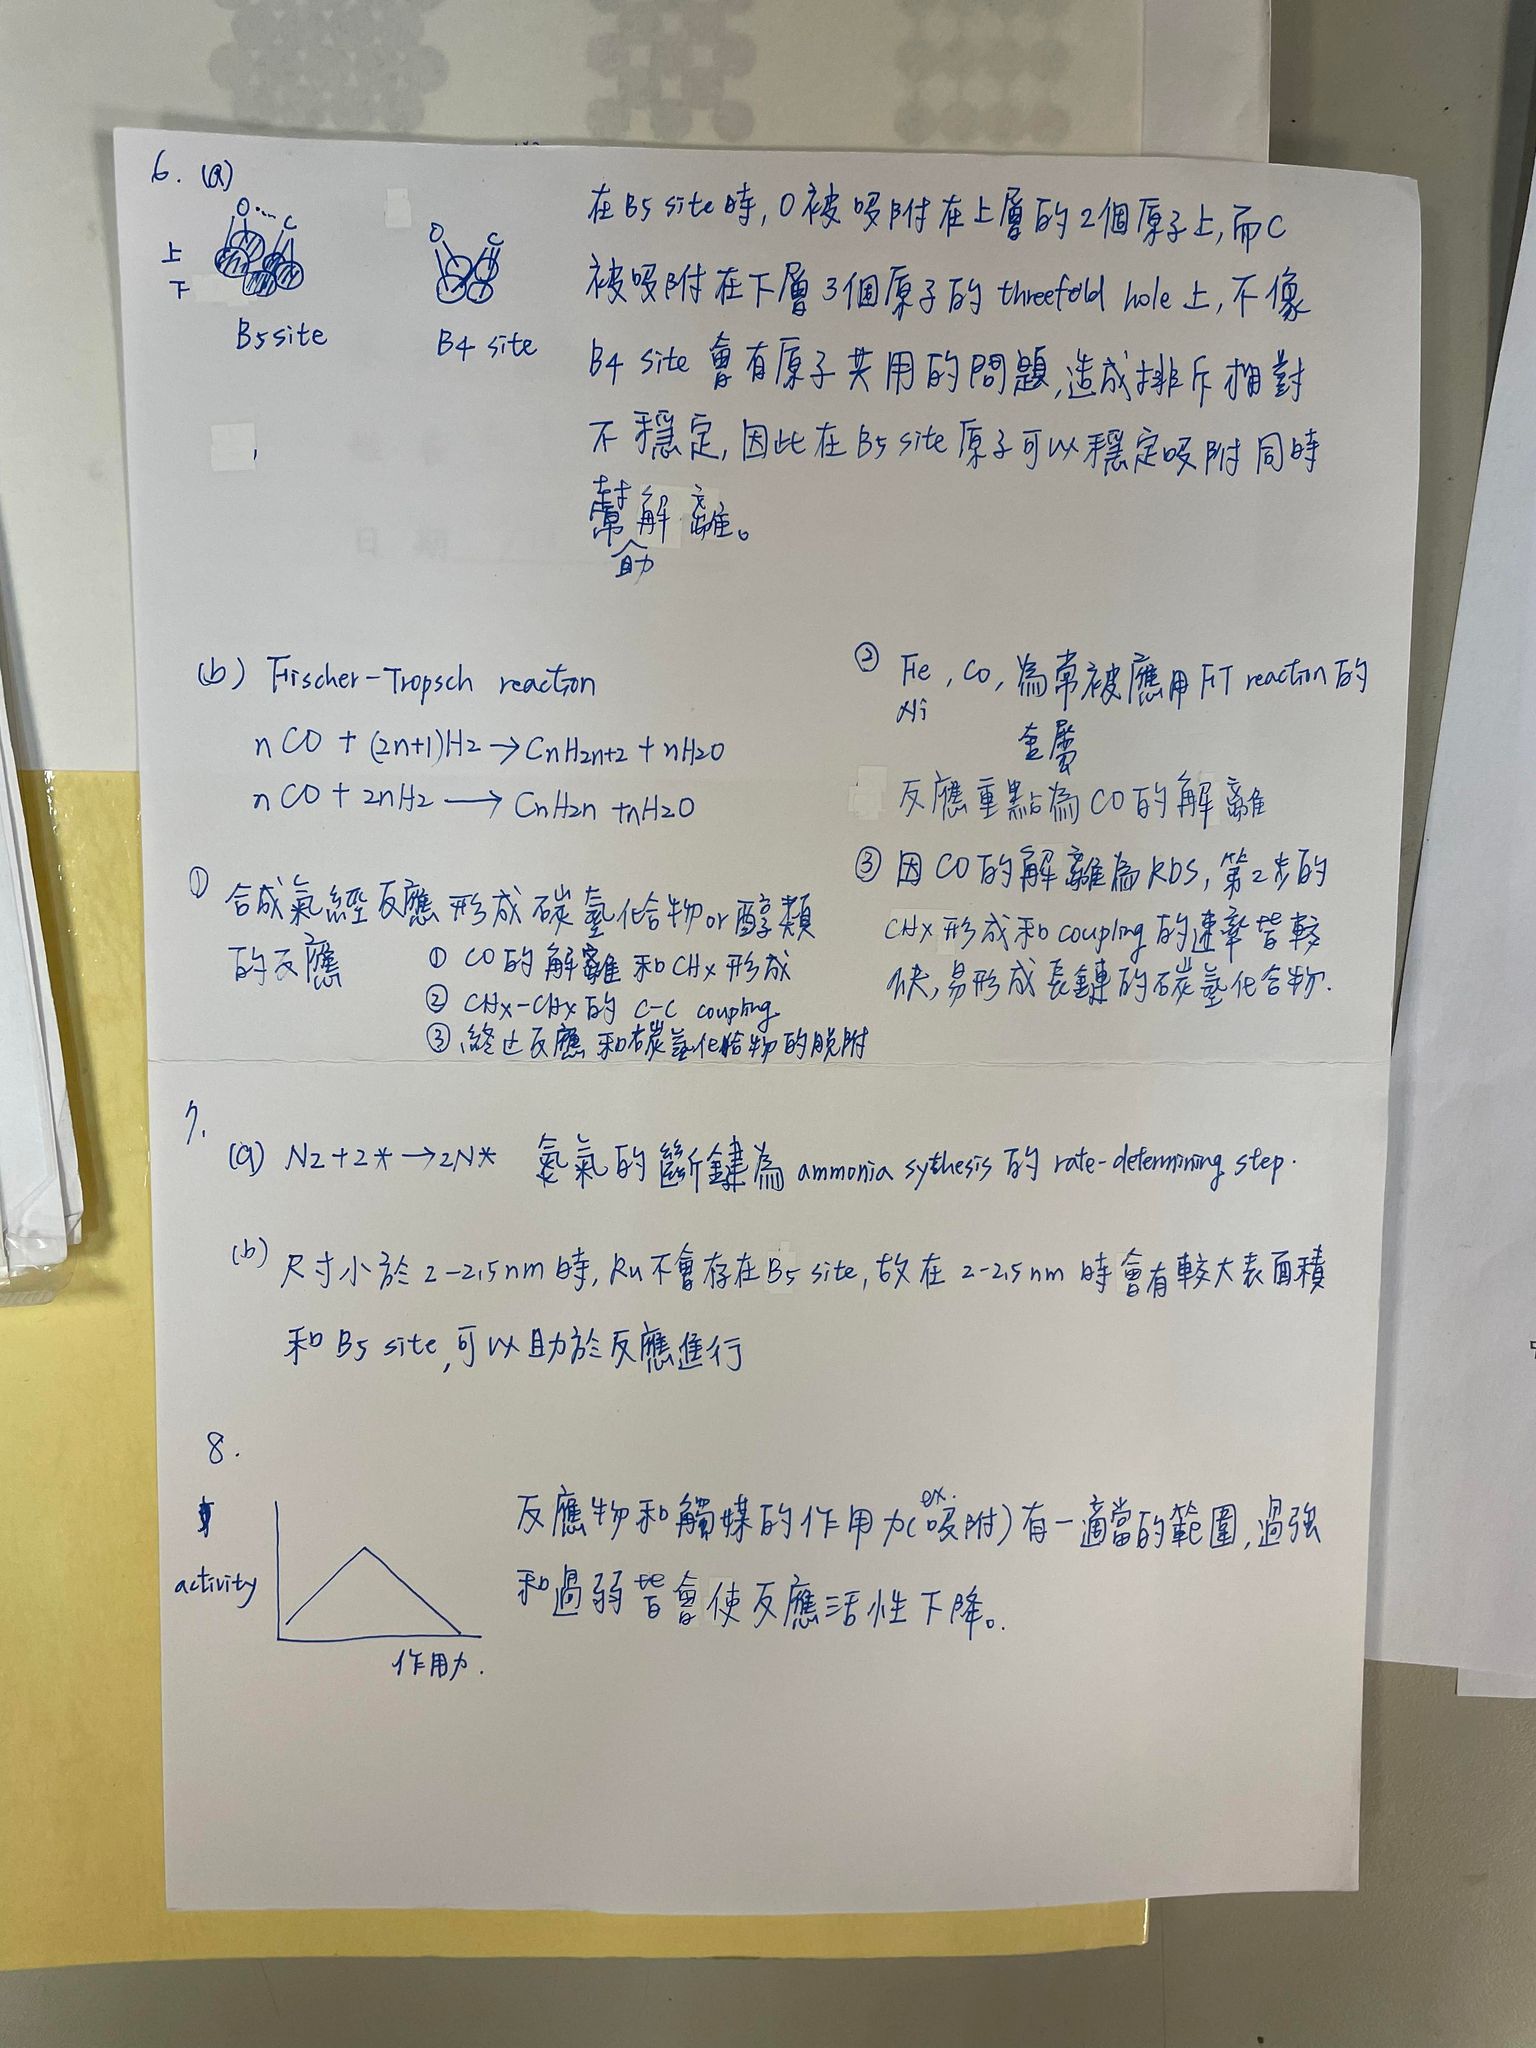 6. (a)
O C
上
下
B5 site
O C
B4 site
在B5 site時, O被吸附在上層的2個原子上, 而C
被吸附在下層3個原子的 threefold hole上, 不像
B4 site 會有原子共用的問題, 造成排斥相對
不穩定, 因此在B5 site原子可以穩定吸附同時
幫助解離。
(b) Fischer-Tropsch reaction
nCO + (2n+1)H2 → CnH2n+2 + nH2O
nCO + 2nH2 → CnH2n + nH2O
① 合成氣經反應形成碳氫化合物or醇類
的反應
① CO的解離和CHx形成
② CHx-CHx的 C-C coupling.
③ 終止反應和碳氫化合物的脫附
② Fe, Co, Ni 為常被應用FT reaction的
金屬
反應重點為CO的解離
③ 因CO的解離為RDS, 第2步的
CHx形成和coupling的速率皆較
快, 易形成長鏈的碳氫化合物.
7.
(a) N2+2* → 2N* 氮氣的斷鍵為 ammonia sythesis 的 rate-determining step.
(b) 尺寸小於 2-2.5nm時, Ru不會存在B5 site, 故在 2-2.5nm 時會有較大表面積
和B5 site, 可以助於反應進行
8.
activity
作用力.
反應物和觸媒的作用力(ex. 吸附)有一適當的範圍, 過強
和過弱皆會使反應活性下降。